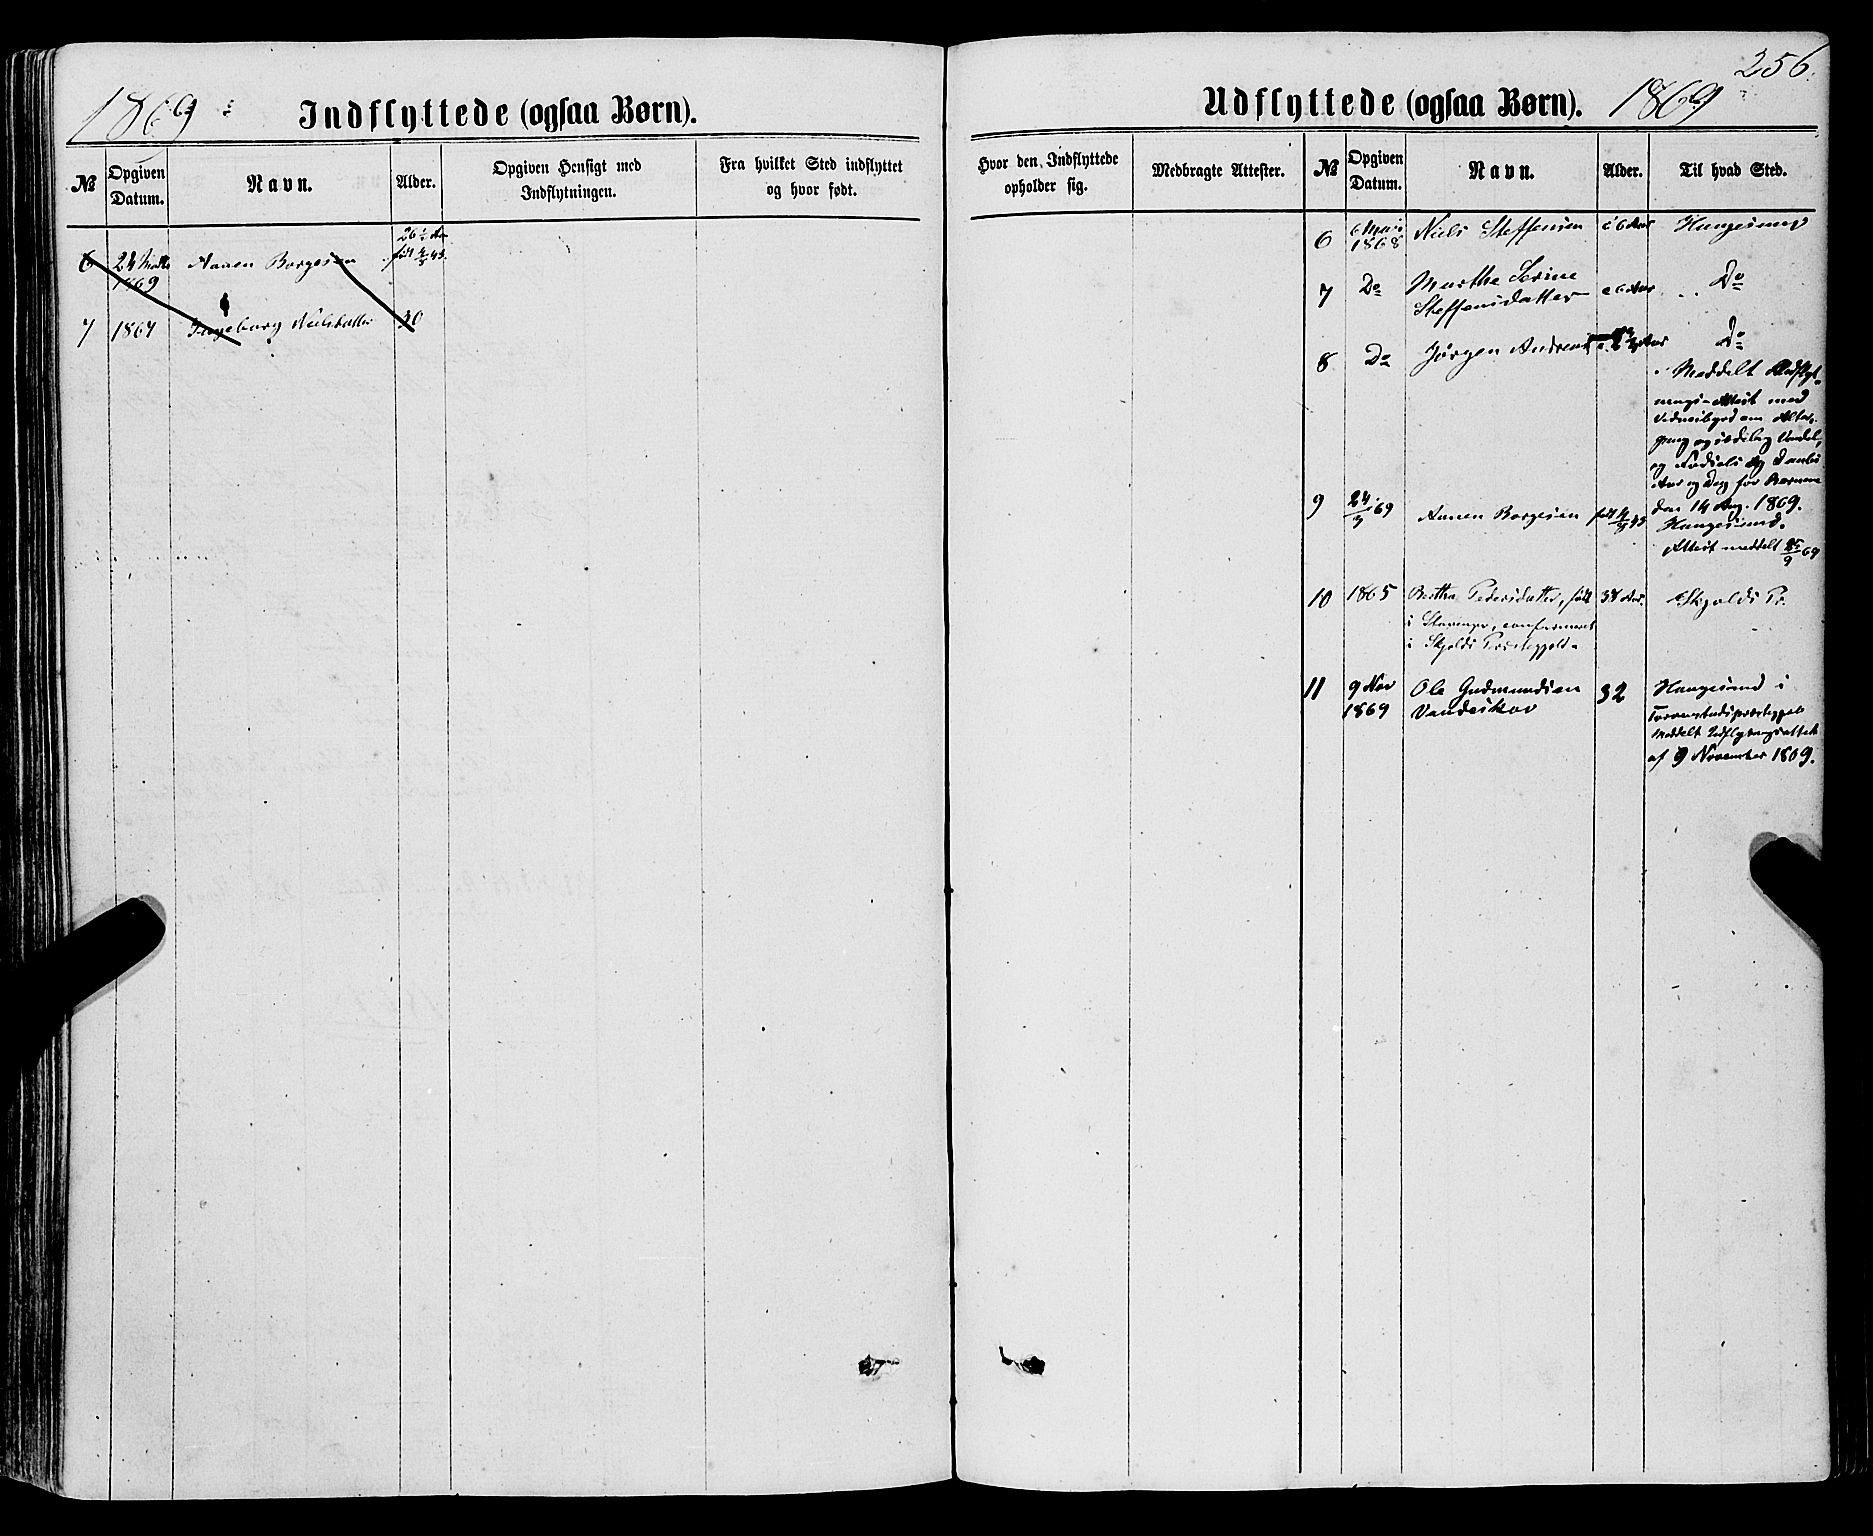 256.
1869
Indflyttede (ogsaa Børn).
№
Opgiven Datum.
Navn.
Alder.
Opgiven Hensigt med Indflytningen.
Fra hvilket Sted indflyttet og hvor født.
6
24 Marts 1869
Aanen Borgesen
26½ Aar
født 4/3 43.
7
1867
Ingeborg Nielsdatter
30
Udflyttede (ogsaa Børn).
1869
Hvor den Indflyttede opholder sig.
Medbragte Attester.
№
Opgiven Datum.
Navn.
Alder.
Til hvad Sted.
6
6 Mai 1868
Niels Steffensen
6 Aar
Haugesund
7
Do
Marthe Serine
Steffensdatter
6 Aar
Do
8
Do
Jørgen Andreas
Aar
Do
Meddelt Udflyt-
nings-Attest med
Vidnesbyrd om Alter-
gang og sædelig Vandel,
og Fødsels og Daabs
Aar og Dag for Børnene
den 14 Aug. 1869.
9
24/3 69
Aanen Borgesen
født 4/3 43
Haugesund.
Attest meddelt 25/9 69
10
1865
Bertha Pedersdatter, født
i Stavanger, confirmeret
i Skjolds Præstegjeld.
38 Aar.
Skjolds Pr.
11
9 Nov 1869
Ole Gudmundsen
Vandeskov
32
Haugesund i
Torvestads præstegjeld
Meddelt Udflytningsattest
af 9 November 1869.